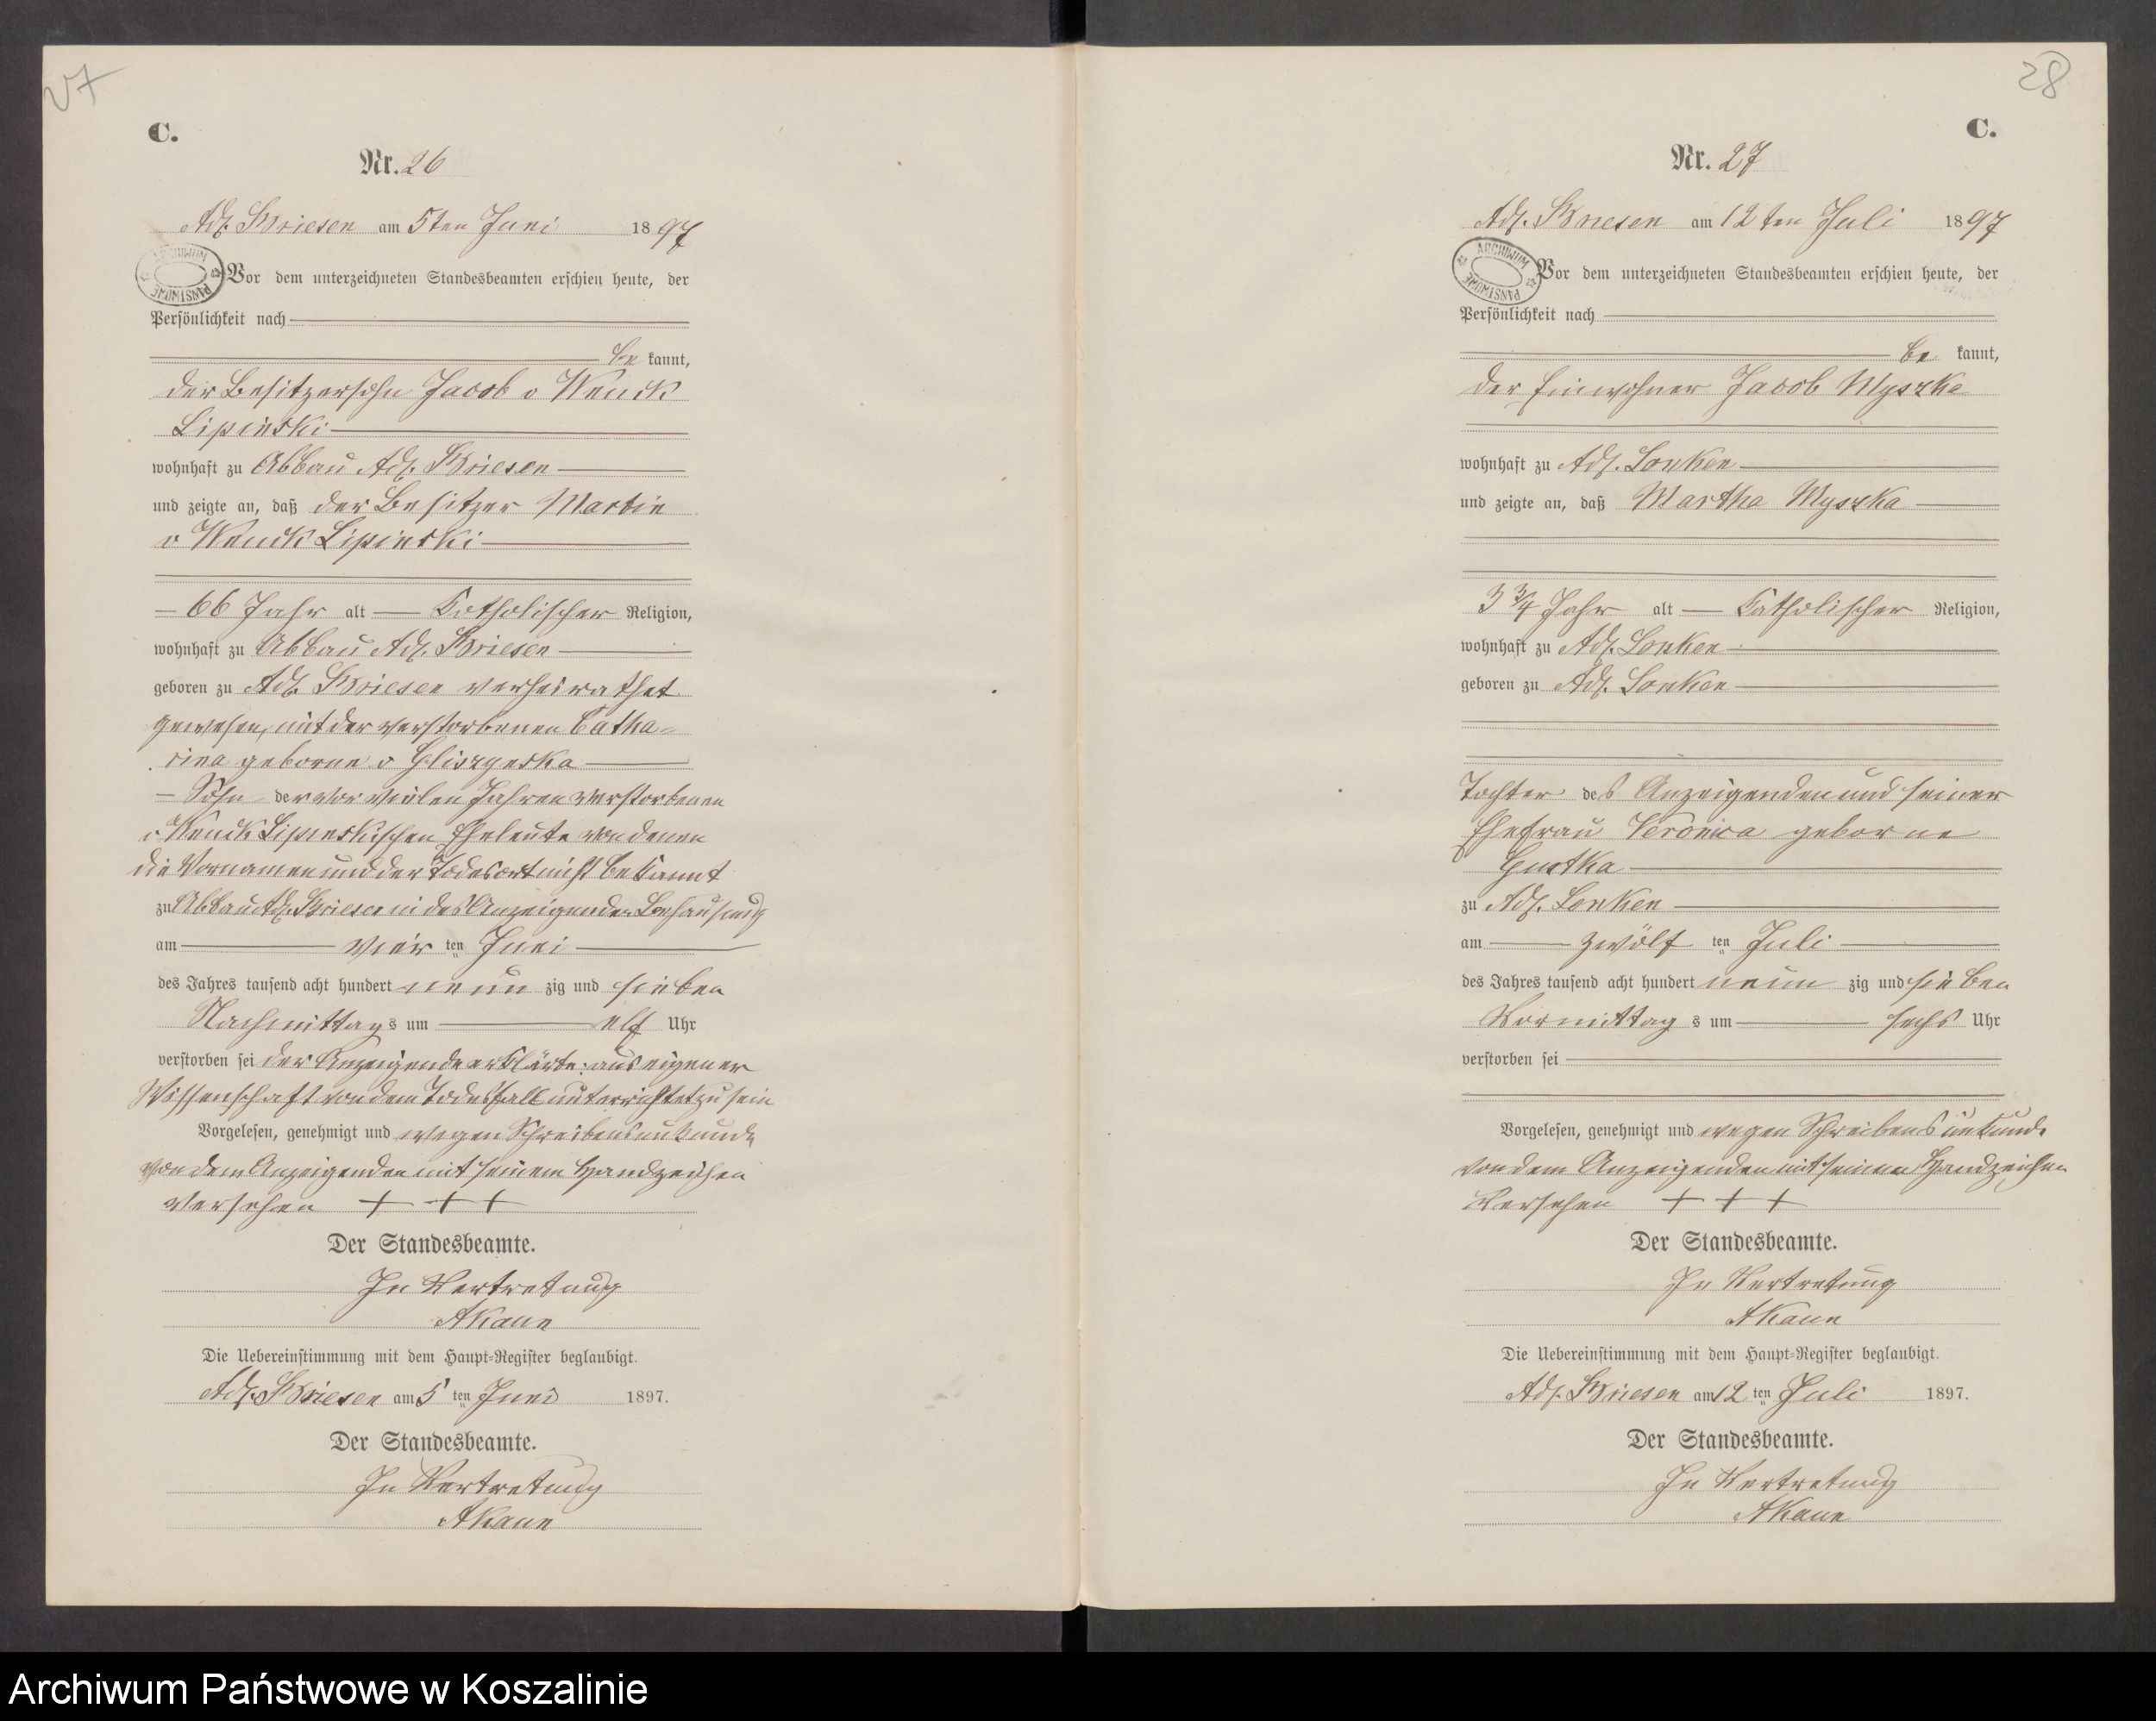 27
C.
Nr. 26
Adl. Briesen am 5ten Juni 1897
ARCHIWUM PAŃSTWOWE
Vor dem unterzeichneten Standesbeamten erschien heute, der
Persönlichkeit nach
be kannt,
der Besitzersohn Jacob v Wenck
Lipinski
wohnhaft zu Abbau Adl. Briesen
und zeigte an, daß der Besitzer Martin
v Wenck Lipinski
66 Jahr alt Katholischer Religion,
wohnhaft zu Abbau Adl. Briesen
geboren zu Adl. Briesen verheirathet
gewesen, mit der verstorbenen Catha-
rina geborne v
Sohn der vor vielen Jahren verstorbenen
v Wenck Lipinskischen Eheleute von denen
die Vornamen und der Todesort nicht bekannt
zu Abbau Adl. Briesen in des Anzeigenden Behausung
am vier ten Juni
des Jahres tausend acht hundert neun zig und sieben
Nachmittags um elf Uhr
verstorben sei der Anzeigende erklärte: aus eigener
Wissenschaft von dem Todesfall unterrichtet zu sein
Vorgelesen, genehmigt und wegen Schreibensunkunde
von dem Anzeigenden mit seinem Handzeichen
versehen + + +
Der Standesbeamte.
In Vertretung
Die Uebereinstimmung mit dem Haupt-Register beglaubigt.
Adl. Briesen am 5 ten Juni 1897.
Der Standesbeamte.
In Vertretung
28
C.
Nr. 27
Adl. Briesen am 12ten Juli 1897
ARCHIWUM PAŃSTWOWE
Vor dem unterzeichneten Standesbeamten erschien heute, der
Persönlichkeit nach
be kannt,
der Einwohner Jacob Myszka
wohnhaft zu Adl. Lonken
und zeigte an, daß Martha Myszka
3 3/4 Jahr alt Katholischer Religion,
wohnhaft zu Adl. Lonken
geboren zu Adl. Lonken
Tochter des Anzeigenden und seiner
Ehefrau Veronica geborne
zu Adl. Lonken
am zwölf ten Juli
des Jahres tausend acht hundert neun zig und sieben
Vormittag s um sechs Uhr
verstorben sei
Vorgelesen, genehmigt und wegen Schreibensunkunde
von dem Anzeigenden mit seinem Handzeichen
versehen + + +
Der Standesbeamte.
In Vertretung
Die Uebereinstimmung mit dem Haupt-Register beglaubigt.
Adl. Briesen am 12 ten Juli 1897.
Der Standesbeamte.
In Vertretung
Archiwum Państwowe w Koszalinie